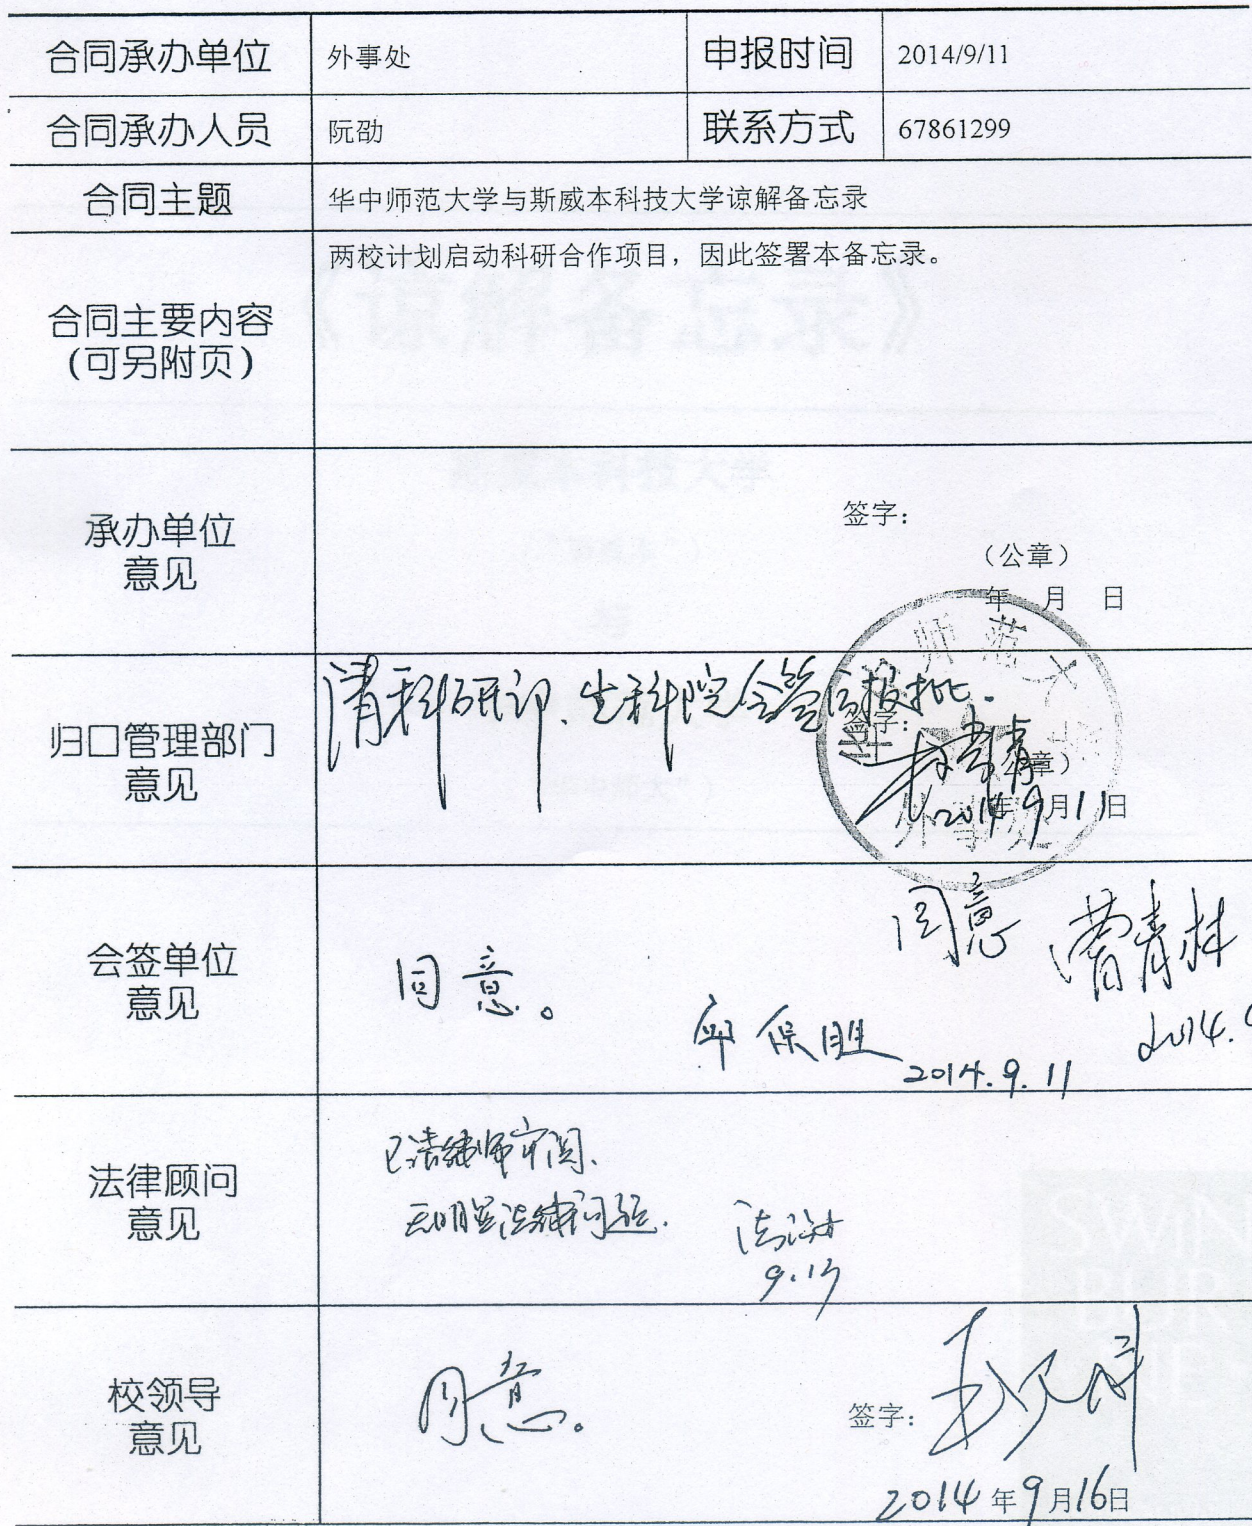 合同承办单位 外事处 申报时间 2014/9/11
合同承办人员 阮劭 联系方式 67861299
合同主题 华中师范大学与斯威本科技大学谅解备忘录
合同主要内容
(可另附页)
两校计划启动科研合作项目，因此签署本备忘录。
承办单位
意见
签字：
（公章）
年 月 日
归口管理部门
意见
请科研部、生科院会签后报批。
签字：
（公章）
2014年9月11日
师范大
外事处
会签单位
意见
同意
同意。
2014.9.11
2014.9
法律顾问
意见
已请律师审阅、
无明显法律问题.
校领导
意见
同意。
签字：
2014年9月16日